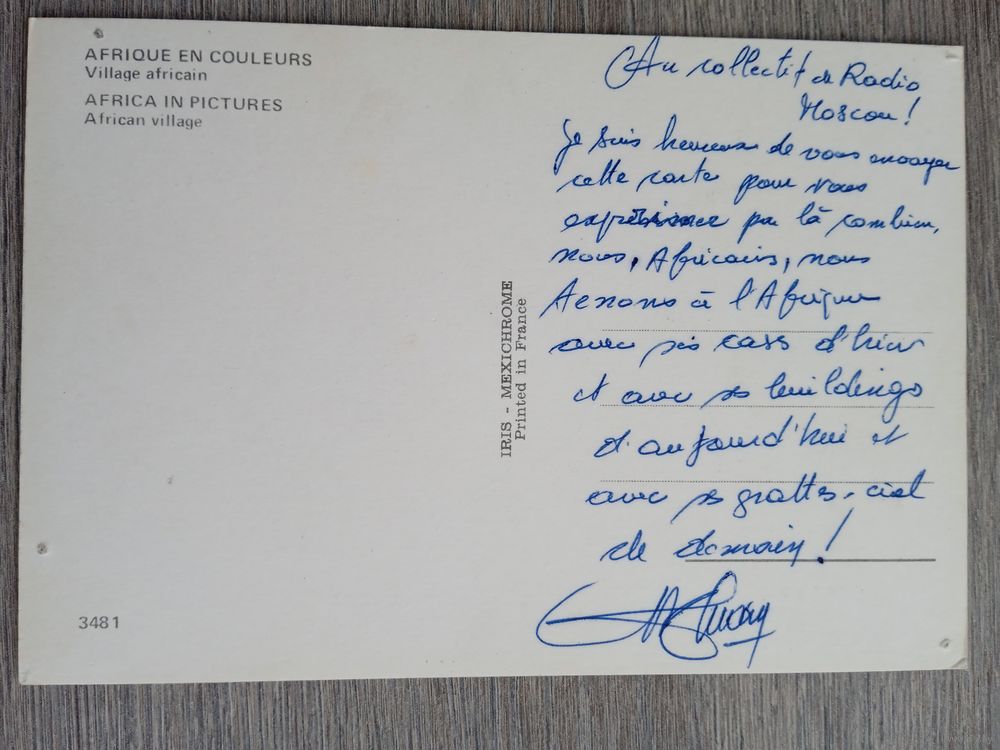 AFRIQUE EN COULEURS
Village africain
AFRICA IN PICTURES
African village
3481
IRIS - MEXICHROME
Printed in France
Au collectif de Radio
Moscou !
Je suis heureux de vous envoyer
cette carte pour vous
par là combien,
nous, Africains, nous
tenons à l'Afrique
avec ses cases d'hier
et avec ses buildings
d'aujourd'hui et
avec ses grattes-ciel
de demain !